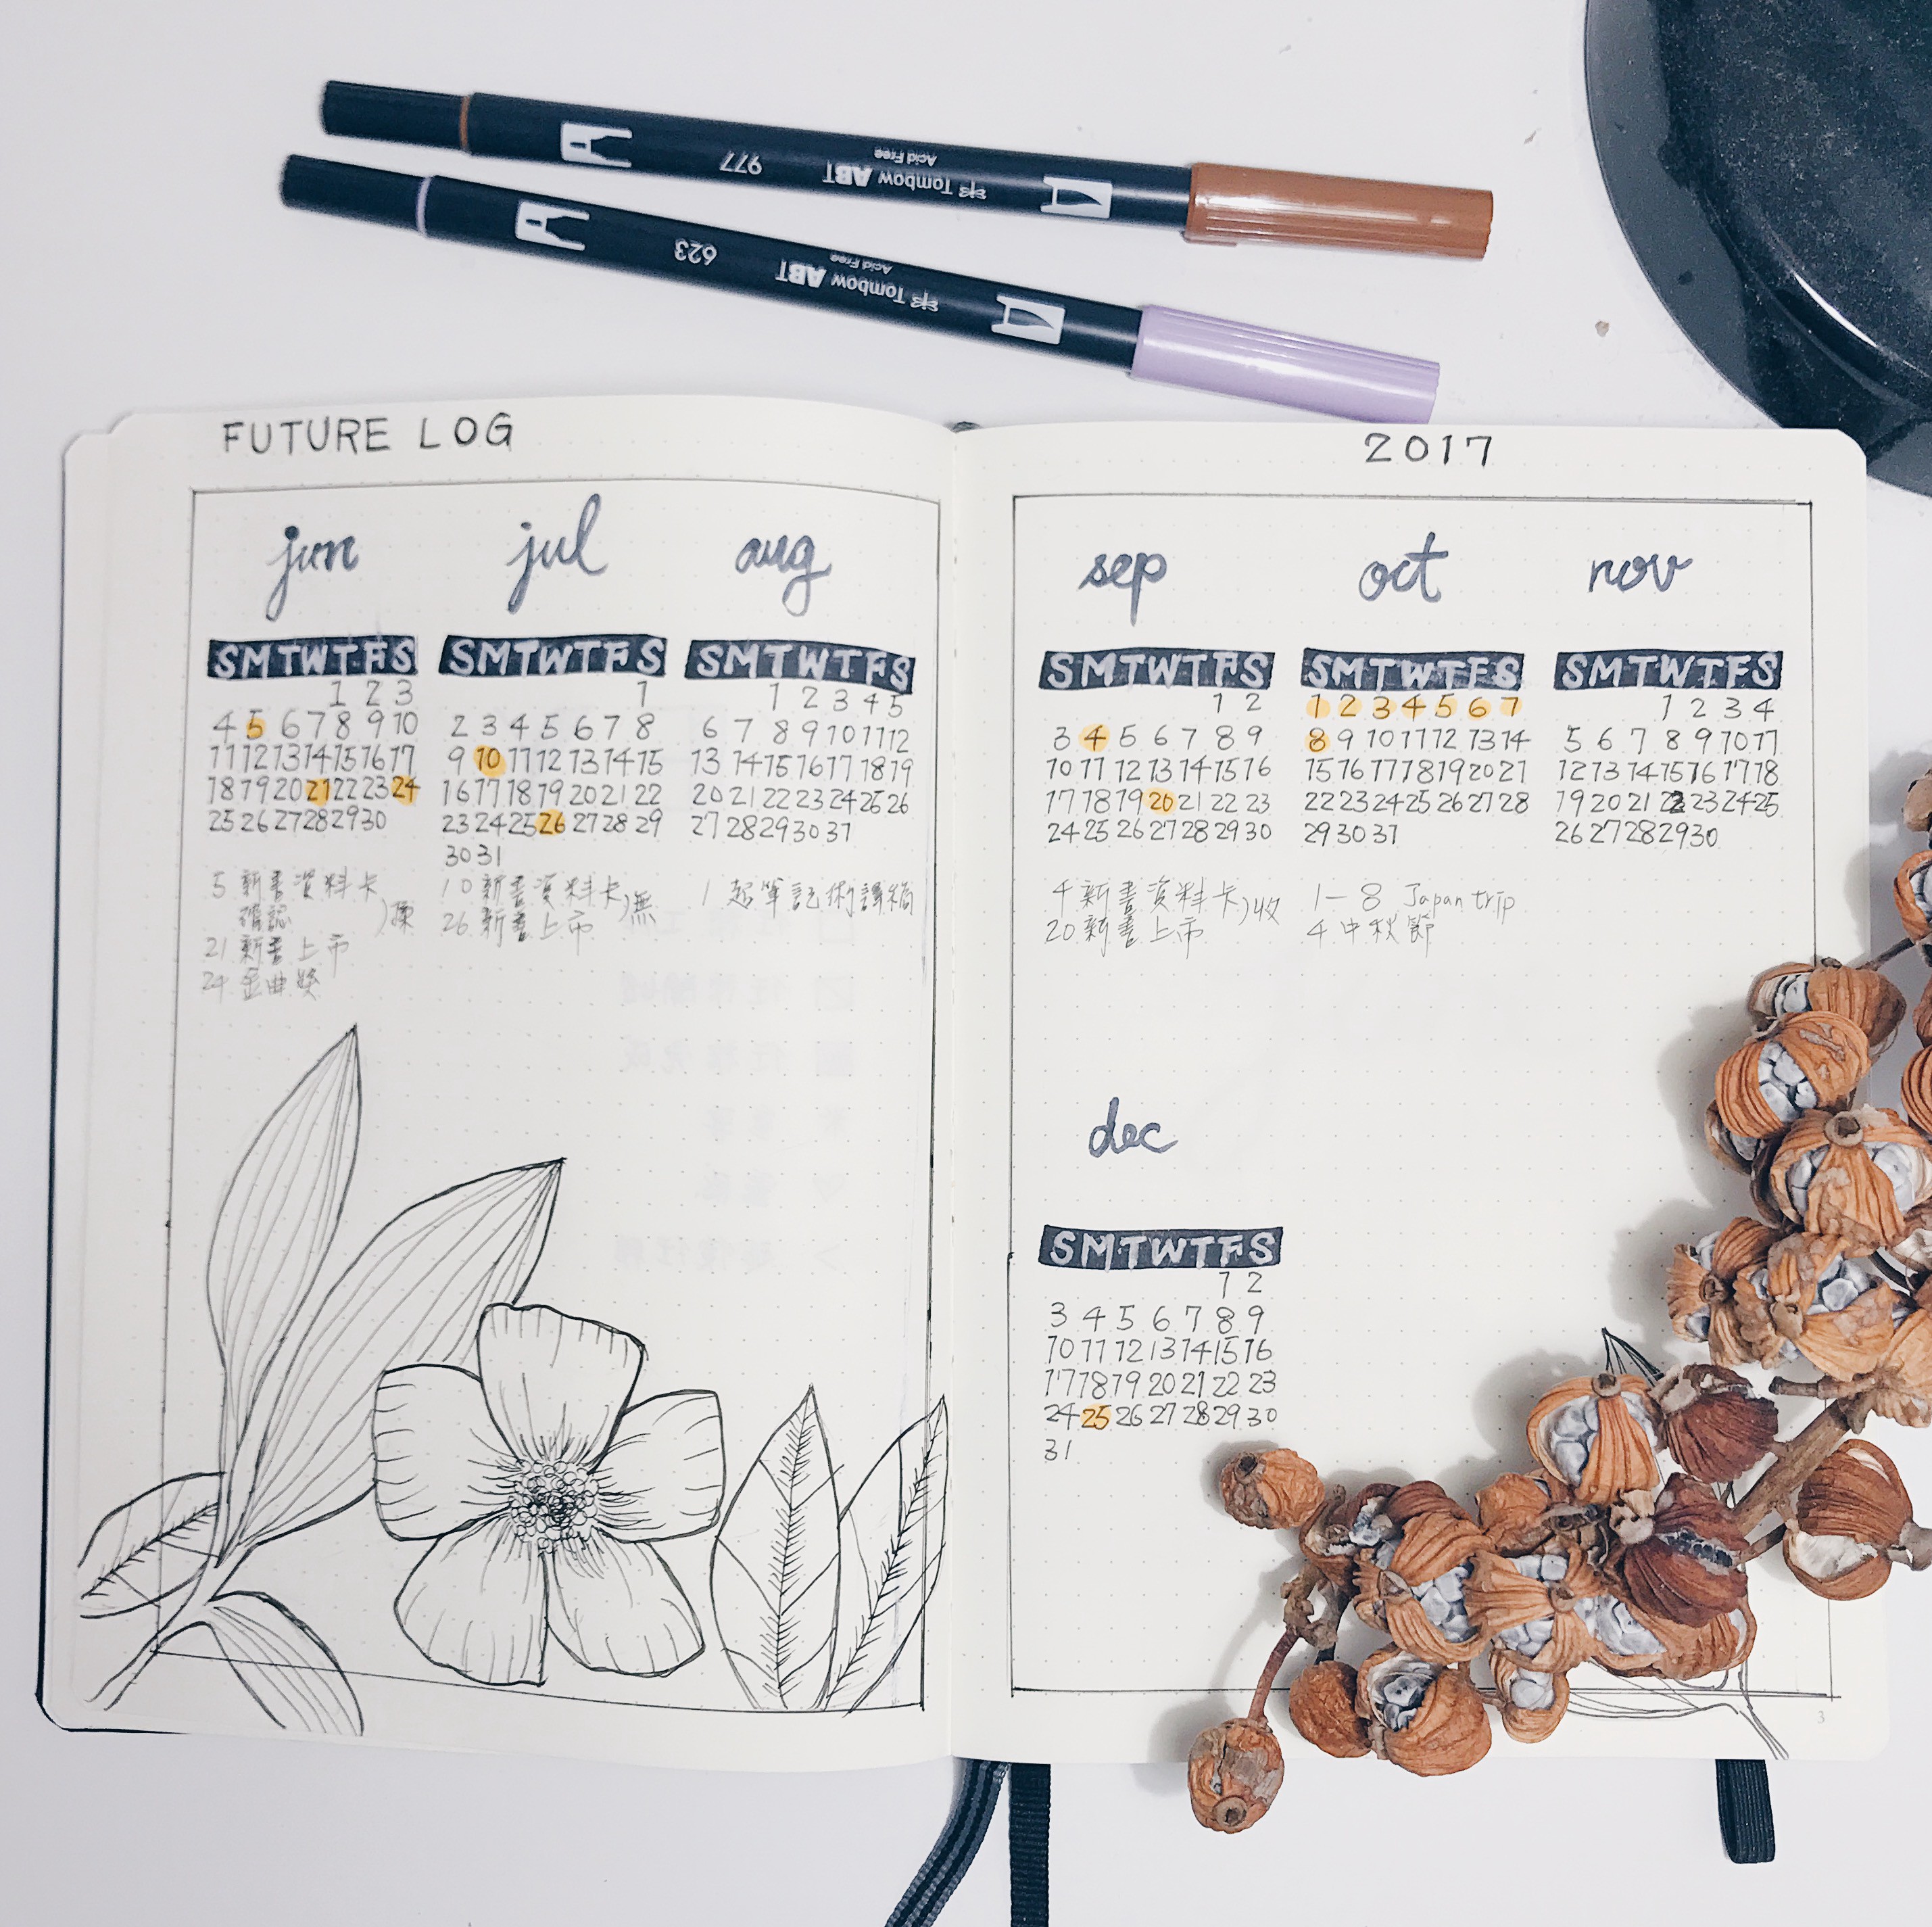 977
Tombow ABT
Acid Free
623
Tombow ABT
Acid Free
FUTURE LOG
2017
jun
SMTWTFS
1 2 3
4 5 6 7 8 9 10
11 12 13 14 15 16 17
18 19 20 21 22 23 24
25 26 27 28 29 30
5 新書資料卡
確認
21 新書上市
24 金曲獎
jul
SMTWTFS
1
2 3 4 5 6 7 8
9 10 11 12 13 14 15
16 17 18 19 20 21 22
23 24 25 26 27 28 29
30 31
10 新書資料卡
26 新書上市
無
aug
SMTWTFS
1 2 3 4 5
6 7 8 9 10 11 12
13 14 15 16 17 18 19
20 21 22 23 24 25 26
27 28 29 30 31
1 超筆記術譯稿
sep
SMTWTFS
1 2
3 4 5 6 7 8 9
10 11 12 13 14 15 16
17 18 19 20 21 22 23
24 25 26 27 28 29 30
4 新書資料卡
20 新書上市
收
oct
SMTWTFS
1 2 3 4 5 6 7
8 9 10 11 12 13 14
15 16 17 18 19 20 21
22 23 24 25 26 27 28
29 30 31
1-8 Japan trip
4 中秋節
nov
SMTWTFS
1 2 3 4
5 6 7 8 9 10 11
12 13 14 15 16 17 18
19 20 21 22 23 24 25
26 27 28 29 30
dec
SMTWTFS
1 2
3 4 5 6 7 8 9
10 11 12 13 14 15 16
17 18 19 20 21 22 23
24 25 26 27 28 29 30
31
3